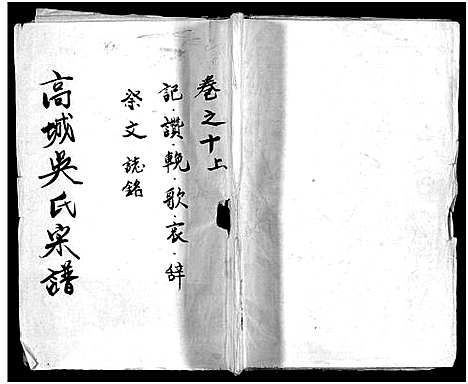 卷之十上
記·讚·輓·歌·哀·辞
祭文 誌銘
高城吳氏宗譜